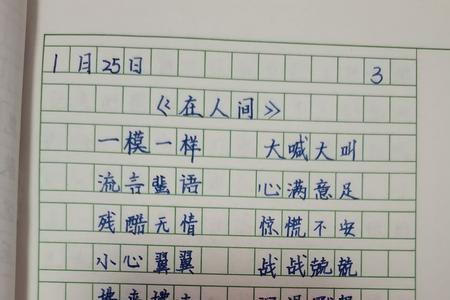 1月25日 3
《在人间》
一模一样 大喊大叫
流言蜚语 心满意足
残酷无情 惊慌不安
小心翼翼 战战兢兢